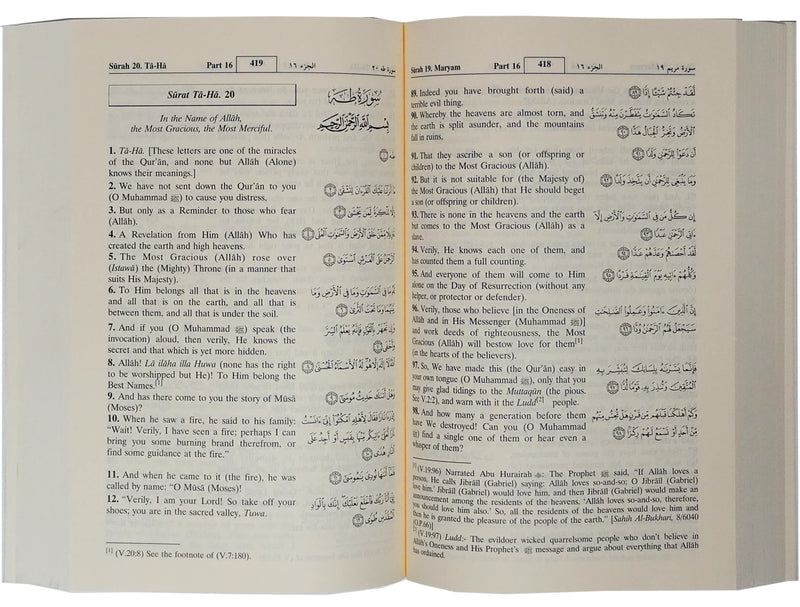 Sûrah 19. Maryam Part 16 418 الجزء ١٦ سورة مريم ١٩
89. Indeed you have brought forth (said) a
terrible evil thing.
90. Whereby the heavens are almost torn, and
the earth is split asunder, and the mountains
fall in ruins,
91. That they ascribe a son (or offspring or
children) to the Most Gracious (Allâh).
92. But it is not suitable for (the Majesty of)
the Most Gracious (Allâh) that He should beget
a son (or offspring or children).
93. There is none in the heavens and the earth
but comes to the Most Gracious (Allâh) as a
slave.
94. Verily, He knows each one of them, and
has counted them a full counting.
95. And everyone of them will come to Him
alone on the Day of Resurrection (without any
helper, or protector or defender).
96. Verily, those who believe [in the Oneness of
Allâh and in His Messenger (Muhammad ﷺ)]
and work deeds of righteousness, the Most
Gracious (Allâh) will bestow love for them[1]
(in the hearts of the believers).
97. So, We have made this (the Qur'ân) easy in
your own tongue (O Muhammad ﷺ), only that you
may give glad tidings to the Muttaqûn (the pious.
See V.2:2), and warn with it the Ludd[2] people.
98. And how many a generation before them
have We destroyed! Can you (O Muhammad
ﷺ) find a single one of them or hear even a
whisper of them?
لَّقَدْ جِئْتُمْ شَيْئًا إِدًّا ٨٩
تَكَادُ ٱلسَّمَوَٰتُ يَتَفَطَّرْنَ مِنْهُ وَتَنشَقُّ
ٱلْأَرْضُ وَتَخِرُّ ٱلْجِبَالُ هَدًّا ٩٠
أَن دَعَوْا لِلرَّحْمَٰنِ وَلَدًا ٩١
وَمَا يَنۢبَغِى لِلرَّحْمَٰنِ أَن يَتَّخِذَ وَلَدًا ٩٢
إِن كُلُّ مَن فِى ٱلسَّمَوَٰتِ وَٱلْأَرْضِ إِلَّآ
ءَاتِى ٱلرَّحْمَٰنِ عَبْدًا ٩٣
لَّقَدْ أَحْصَىٰهُمْ وَعَدَّهُمْ عَدًّا ٩٤
وَكُلُّهُمْ ءَاتِيهِ يَوْمَ ٱلْقِيَٰمَةِ فَرْدًا ٩٥
إِنَّ ٱلَّذِينَ ءَامَنُوا۟ وَعَمِلُوا۟ ٱلصَّٰلِحَٰتِ
سَيَجْعَلُ لَهُمُ ٱلرَّحْمَٰنُ وُدًّا ٩٦
فَإِنَّمَا يَسَّرْنَٰهُ بِلِسَانِكَ لِتُبَشِّرَ بِهِ
ٱلْمُتَّقِينَ وَتُنذِرَ بِهِۦ قَوْمًا لُّدًّا ٩٧
وَكَمْ أَهْلَكْنَا قَبْلَهُم مِّن قَرْنٍ هَلْ تُحِسُّ مِنْهُم
مِّنْ أَحَدٍ أَوْ تَسْمَعُ لَهُمْ رِكْزًۢا ٩٨
[1] (V.19:96) Narrated Abu Hurairah: The Prophet ﷺ said, "If Allâh loves a
person, He calls Jibrâîl (Gabriel) saying: Allâh loves so-and-so; O Jibrâîl (Gabriel)
love him.' Jibrâîl (Gabriel) would love him, and then Jibrâîl (Gabriel) would make an
announcement among the residents of the heavens, 'Allâh loves so-and-so, therefore,
you should love him also.' So, all the residents of the heavens would love him and
then he is granted the pleasure of the people of the earth." [Sahih Al-Bukhari, 8/6040
(O.P.66)]
[2] (V.19:97) Ludd:- The evildoer wicked quarrelsome people who don't believe in
Allâh's Oneness and His Prophet's ﷺ message and argue about everything that Allâh
has ordained.
Sûrah 20. Tâ-Hâ Part 16 419 الجزء ١٦ سورة طه ٢٠
Sûrat Tâ-Hâ. 20
In the Name of Allâh,
the Most Gracious, the Most Merciful.
1. Tâ-Hâ. [These letters are one of the miracles
of the Qur'ân, and none but Allâh (Alone)
knows their meanings.]
2. We have not sent down the Qur'ân to you
(O Muhammad ﷺ) to cause you distress,
3. But only as a Reminder to those who fear
(Allâh).
4. A Revelation from Him (Allâh) Who has
created the earth and high heavens.
5. The Most Gracious (Allâh) rose over
(Istawâ) the (Mighty) Throne (in a manner that
suits His Majesty).
6. To Him belongs all that is in the heavens
and all that is on the earth, and all that is
between them, and all that is under the soil.
7. And if you (O Muhammad ﷺ) speak (the
invocation) aloud, then verily, He knows the
secret and that which is yet more hidden.
8. Allâh! Lâ ilâha illa Huwa (none has the right
to be worshipped but He)! To Him belong the
Best Names.[1]
9. And has there come to you the story of Mûsâ
(Moses)?
10. When he saw a fire, he said to his family:
"Wait! Verily, I have seen a fire; perhaps I can
bring you some burning brand therefrom, or
find some guidance at the fire."
11. And when he came to it (the fire), he was
called by name: "O Mûsâ (Moses)!
12. "Verily, I am your Lord! So take off your
shoes; you are in the sacred valley, Tuwa.
سُورَةُ طه
بِسْمِ ٱللَّهِ ٱلرَّحْمَٰنِ ٱلرَّحِيمِ
طه ١
مَآ أَنزَلْنَا عَلَيْكَ ٱلْقُرْءَانَ لِتَشْقَىٰٓ ٢
إِلَّا تَذْكِرَةً لِّمَن يَخْشَىٰ ٣
تَنزِيلًا مِّمَّنْ خَلَقَ ٱلْأَرْضَ وَٱلسَّمَوَٰتِ ٱلْعُلَى ٤
ٱلرَّحْمَٰنُ عَلَى ٱلْعَرْشِ ٱسْتَوَىٰ ٥
لَهُۥ مَا فِى ٱلسَّمَوَٰتِ وَمَا فِى ٱلْأَرْضِ وَمَا
بَيْنَهُمَا وَمَا تَحْتَ ٱلثَّرَىٰ ٦
وَإِن تَجْهَرْ بِٱلْقَوْلِ فَإِنَّهُۥ يَعْلَمُ ٱلسِّرَّ
وَأَخْفَى ٧
ٱللَّهُ لَآ إِلَٰهَ إِلَّا هُوَ لَهُ ٱلْأَسْمَآءُ ٱلْحُسْنَىٰ ٨
وَهَلْ أَتَىٰكَ حَدِيثُ مُوسَىٰٓ ٩
إِذْ رَءَا نَارًا فَقَالَ لِأَهْلِهِ ٱمْكُثُوٓا۟ إِنِّىٓ ءَانَسْتُ
نَارًا لَّعَلِّىٓ ءَاتِيكُم مِّنْهَا بِقَبَسٍ أَوْ أَجِدُ عَلَى
ٱلنَّارِ هُدًى ١٠
فَلَمَّآ أَتَىٰهَا نُودِىَ يَٰمُوسَىٰٓ ١١
إِنِّىٓ أَنَا۠ رَبُّكَ فَٱخْلَعْ نَعْلَيْكَ إِنَّكَ بِٱلْوَادِ
ٱلْمُقَدَّسِ طُوًى ١٢
[1] (V.20:8) See the footnote of (V.7:180).